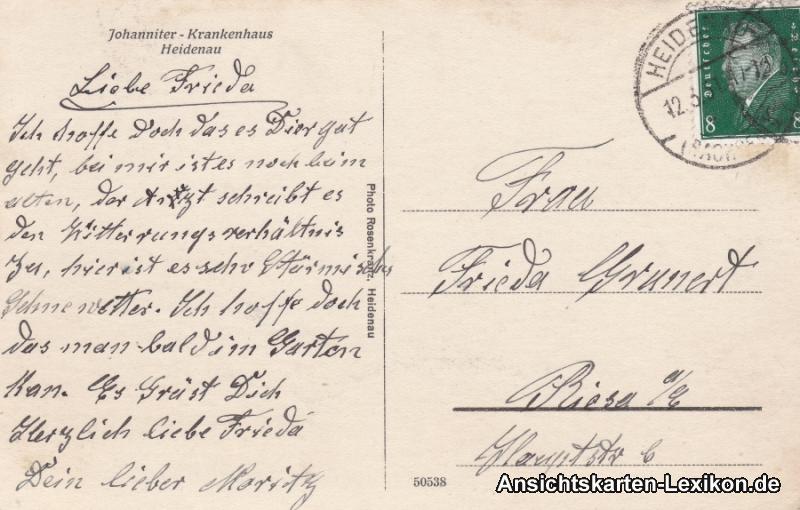 Johanniter - Krankenhaus
Heidenau
Liebe Frieda
Ich hoffe doch das es Dier gut
geht, bei mir ist es noch beim
alten, der Artzt schreibt es
den Witterungsverhältnis
zu, hier ist es sehr Stürmisches
Schnewetter. Ich hoffe doch
das man bald im Garten
kan. Es Grüst Dich
Herzlich liebe Frieda
Dein lieber Moritz
Photo Rosenkranz, Heidenau
50538
HEIDENAU
12.3.
(SACHSEN)
Deutsches Reich
8 8
Frau
Frieda Grunert
Riesa a/E
Hauptstr 6
Ansichtskarten-Lexikon.de